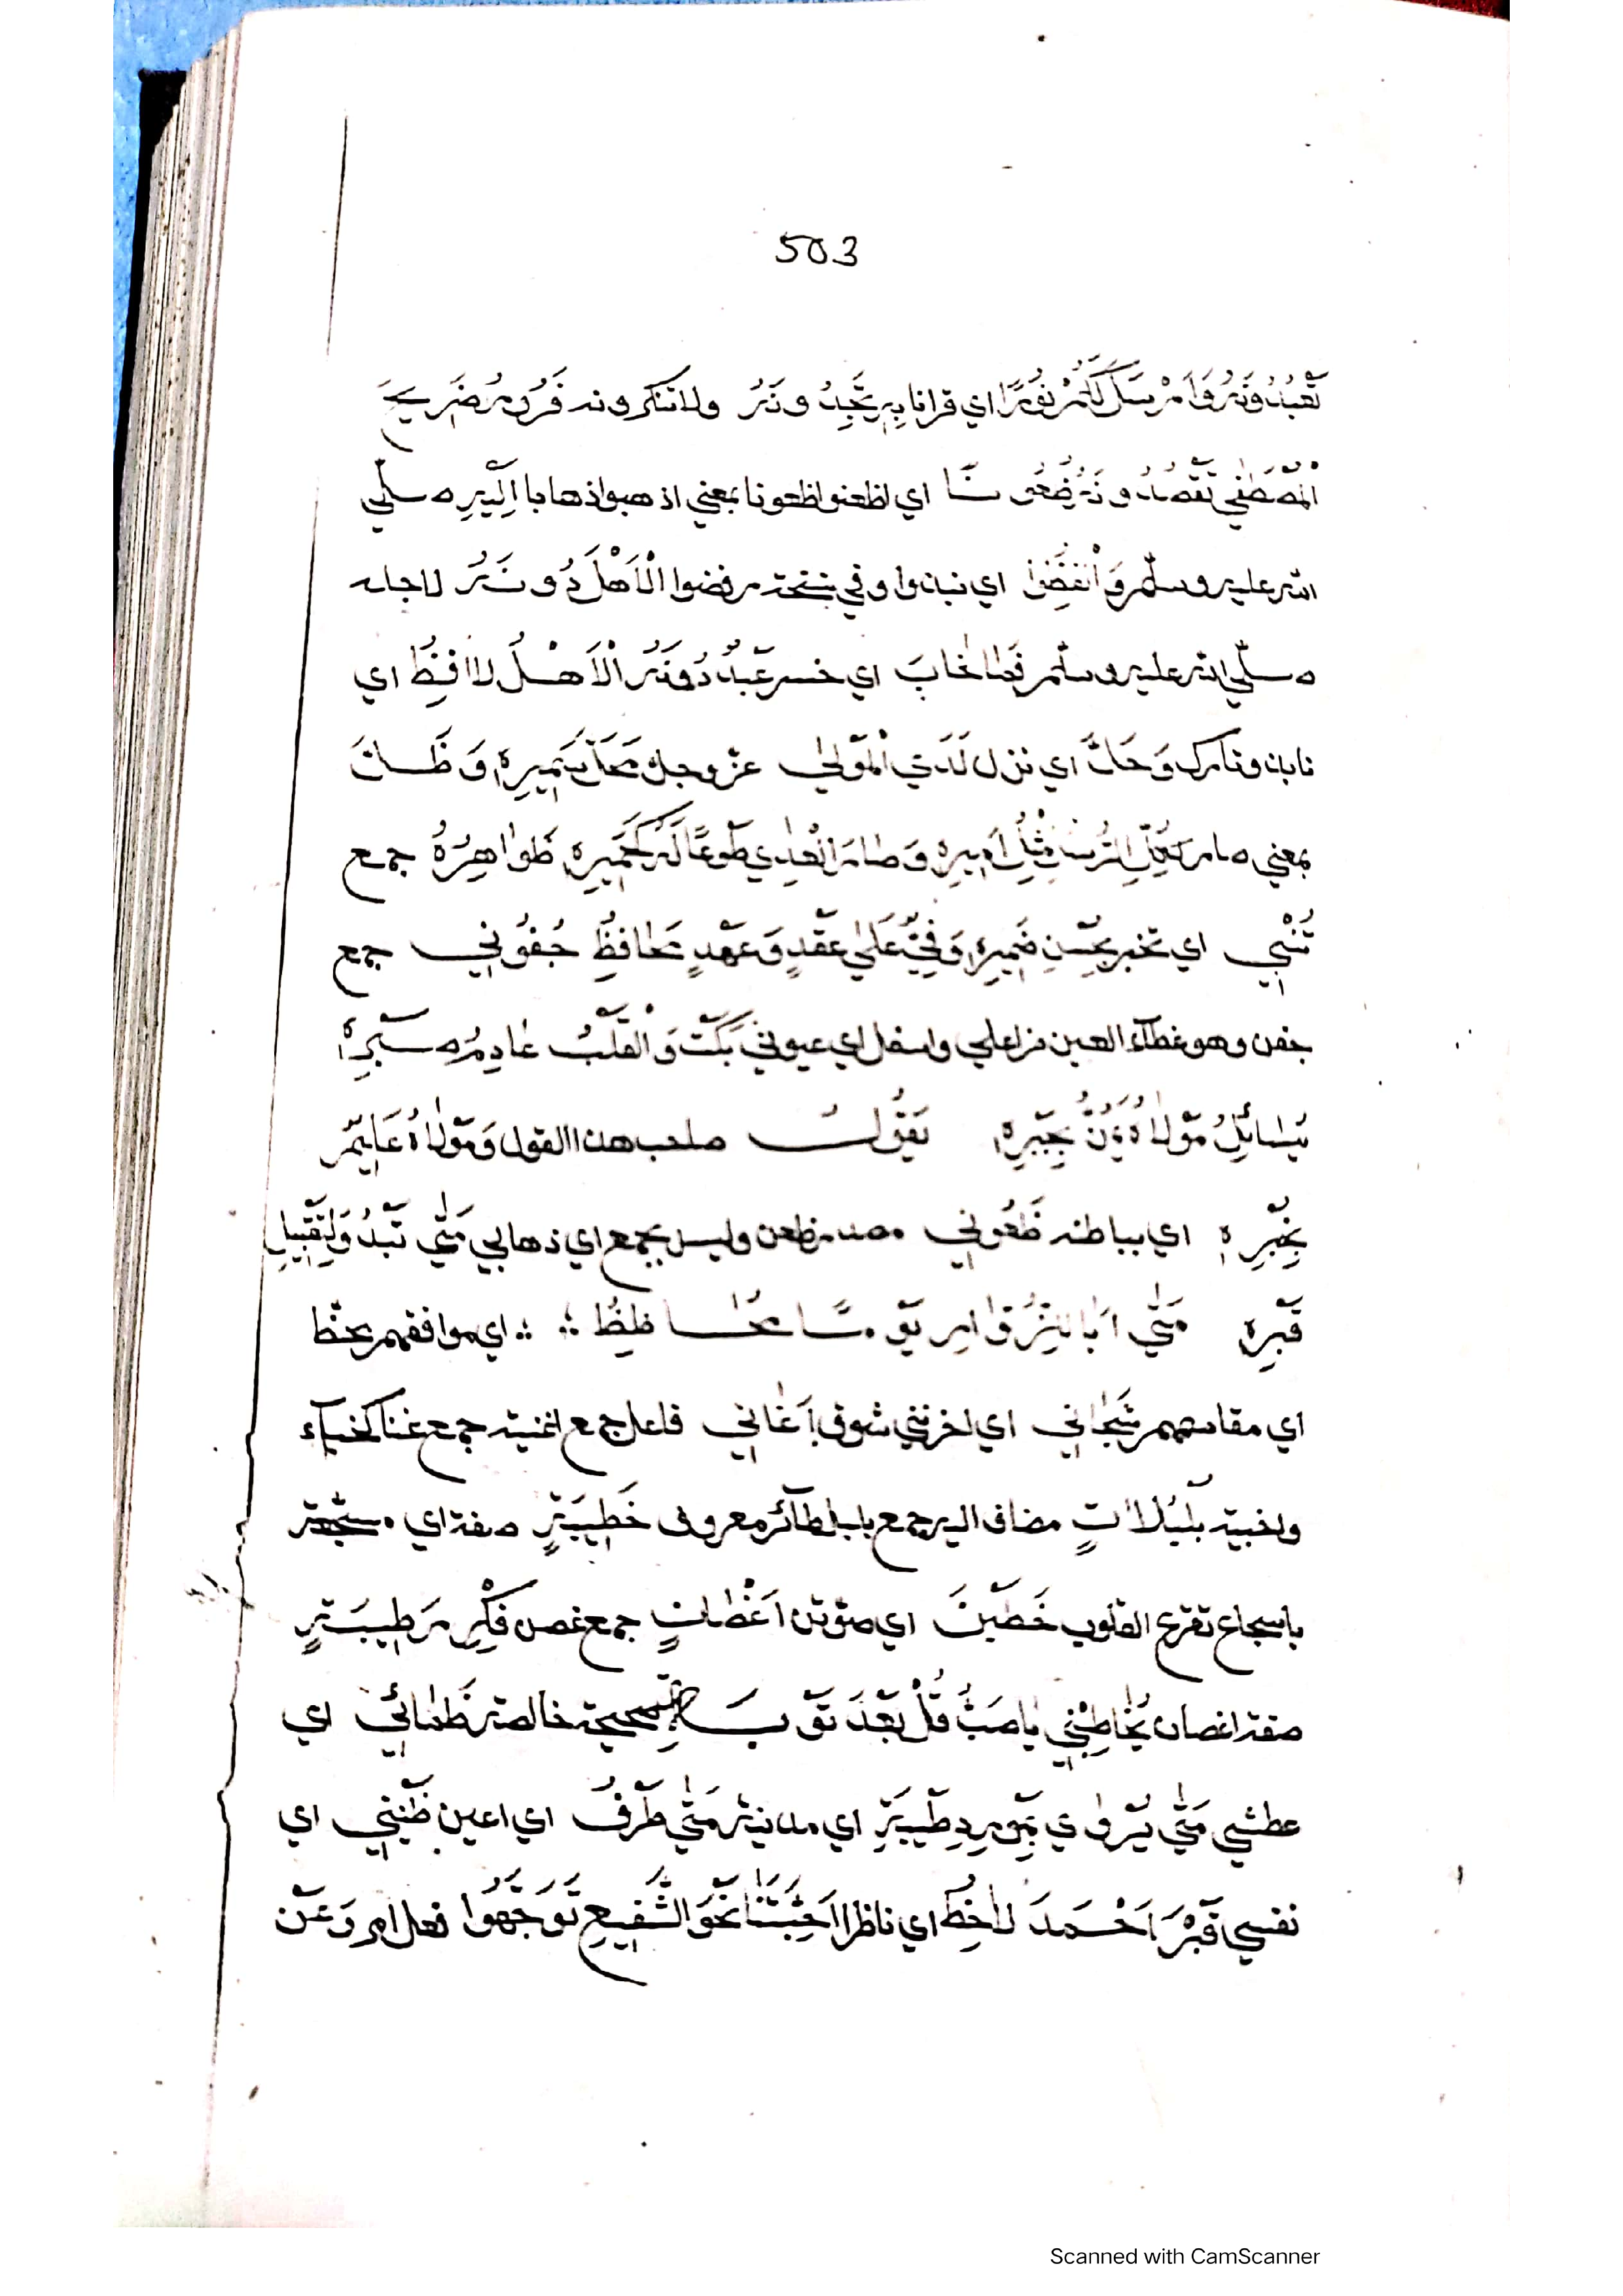 503
تَعْبُدُونَهُ وَاَرْسَلَ لَكُمْ نُورًا اي قرانا بِهِ تَجِدُونَهُ ولا تنكرونه فَزُورُ ضَرِيحَ
الْمُصْطَفٰي تَقْصُدُونَهُ ضَعُونًا اي اظعنوا ظعونا بمعني اذهبوا ذهابا اِلَيْهِ صلّي
الله عليه وسلّم وَانْفُضُوا اي نبذوا وفي نسخة رفضوا الْاَهْلَ دُونَهُ لاجله
صلّي الله عليه وسلّم فَمَا خَابَ اي خسر عَبْدٌ دُونَهُ الْاَهْلُ لافِظُ اي
نابذ وتارك وَحَلَّ اي نزل لَدَي الْمَوْلٰي عزّ وجلّ مَحَلَّ سَمِيرِهِ وَظَلَّ
بمعني صار لِكُلِّ الرُّسْلِ مِثْلَ اَمِيرِهِ وَصَارَ الْعِدٰي طَوْعًا لَهُ كَحَمِيرِهِ ظَوَاهِرُهُ جمع
تُنْبِي اي تخبر بِحُسْنِ ضَمِيرِهِ وَفِيٌّ عَلٰي عَقْدٍ وَعَهْدٍ مُحَافِظُ جُفُونِي جمع
جفن وهو غطآء العين من اعلي واسفل اي عيوني بَكَتْ وَالْقَلْبُ عَادِمُ صَبْرِهِ
يُسَائِلُ مَوْلَاهُ يَمُنُّ بِجَبْرِهِ يَقُولُ صاحب هذا القول وَمَوْلَاهُ عَلِيمٌ
بِخُبْرِهِ اي بباطنه ظَعُونِي مصدر ظعن وليس بجمع اي ذهابي مَتٰي تَبْدُ وَلِتَقْبِيلِ
قَبْرِهِ مَتٰي اَبَا لِلزُّوَّارِ يَوْمًا مُحَافِظُ ∴ ∴ اي موافقهم بحظّا
اي مقاسمهم شَجَانِي اي احزنني شوق اَغَانِي فاعل جمع اغنية جمع غنا كخبآء
واخبية بُلَيْلَاتٍ مضاف اليه جمع بلبل طآئر معروف خَطِيبَةٍ صفة اي مسجعة
باسجاع تقرع القلوب خَطَبْنَ اي صوّتن اَغْصَانٍ جمع غصن فِكْرٍ رَطِيبَةٍ
صفة اغصان يُخَاطِبْنِي يَا صَبُّ قُلْ بَعْدَ تَوْبَةٍ صحيحة خالصة ظَمَائِي اي
عطشي مَتٰي يُرْوٰي بِمَوْرِدِ طَيْبَةٍ اي مدينة مَتٰي طَرْفُ اي اعين ظَنِّي اي
نفسي قَبْرَ اَحْمَدَ لَاحِظُ اي ناظر اَحِبَّتَنَا نَحْوَ الشَّفِيعِ تَوَجَّهُوا فعل امر وَعَنْ
Scanned with CamScanner